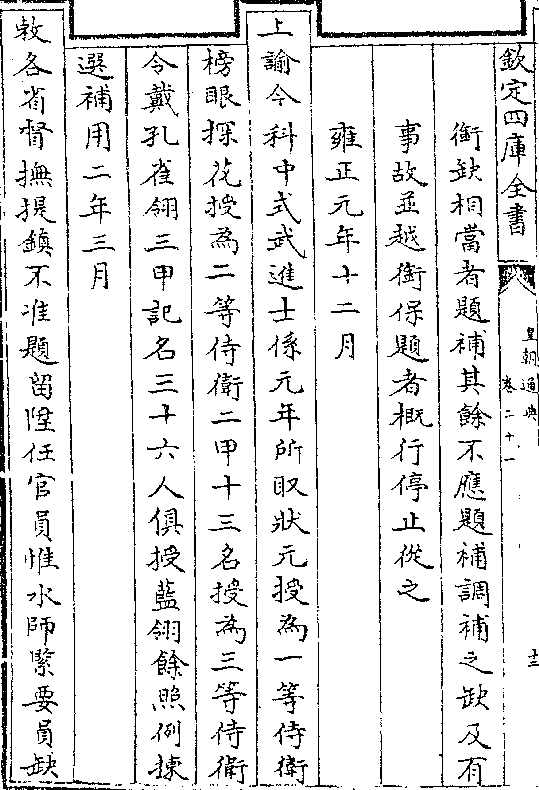 欽定四庫全書
皇朝通典
卷二十一
十三
銜缺相當者題補其餘不應題補調補之缺及有
事故並越銜保題者概行停止從之
雍正元年十二月
上諭今科中式武進士係元年所取狀元授為一等侍衛
榜眼探花授為二等侍衛二甲十三名授為三等侍衛
令戴孔雀翎三甲記名三十六人俱授藍翎餘照例揀
選補用二年三月
敕各省督撫提鎮不准題留陞任官員惟水師緊要員缺